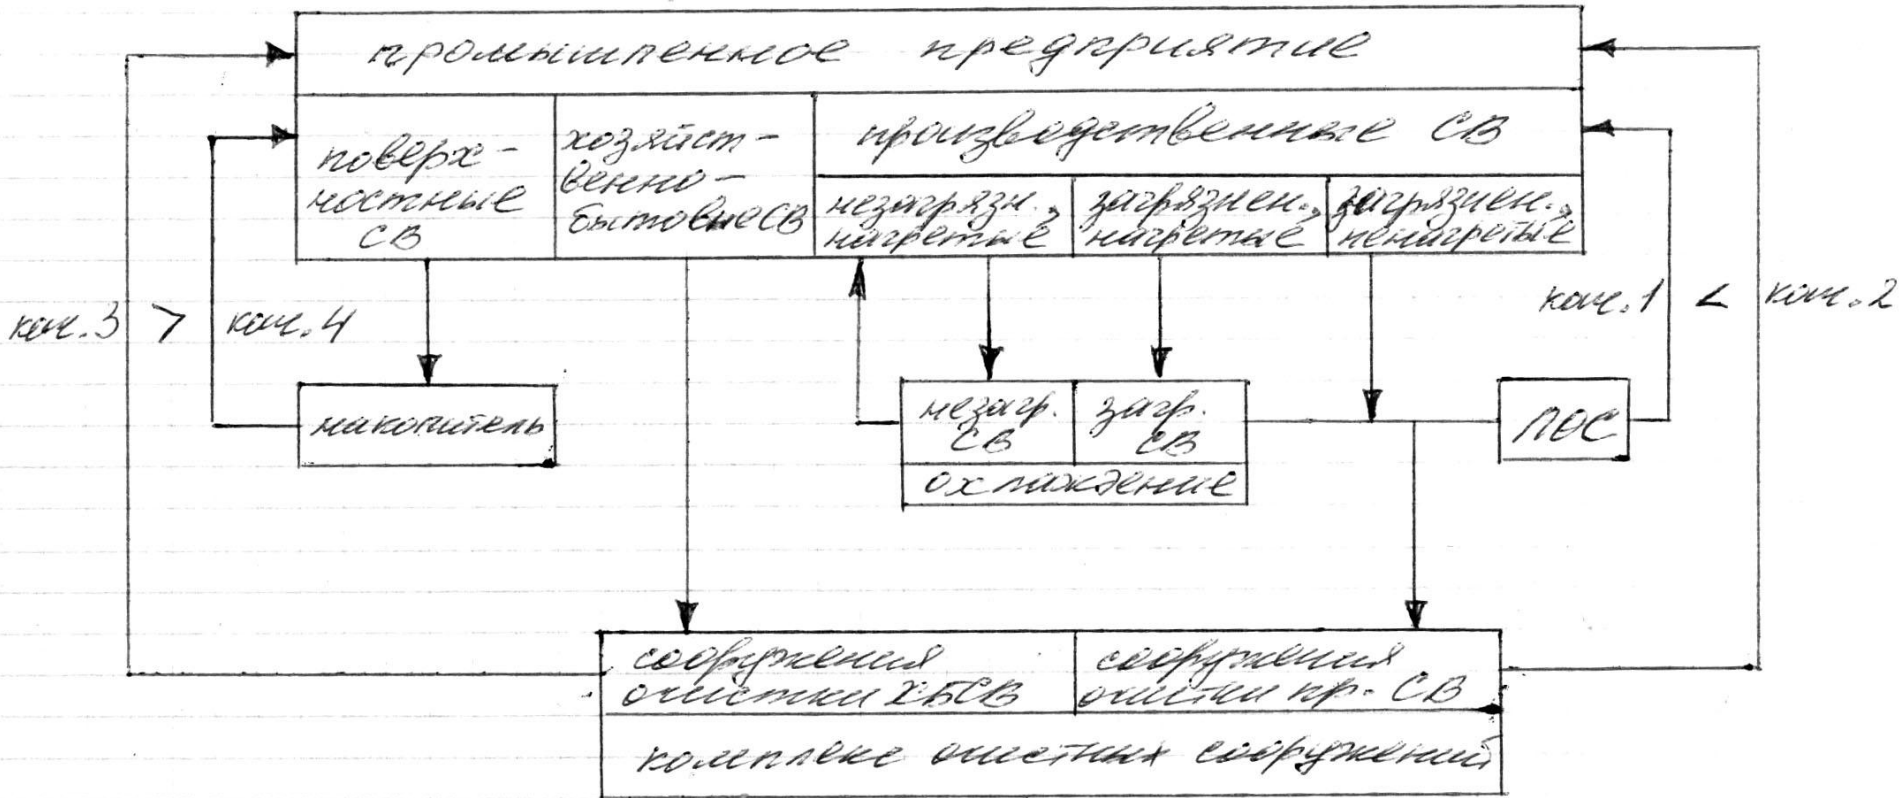 промышленное предприятие
поверх-
ностные
СВ
хозяйст-
венно-
бытовые СВ
производственные СВ
незагрязн.,
нагретые
загрязнен.,
нагретые
загрязнен.,
ненагретые
кач. 3 > кач. 4
кач. 1 < кач. 2
накопитель
незагр.
СВ
загр.
СВ
охлаждение
ЛОС
сооружения
очистки ХБСВ
сооружения
очистки пр. СВ
комплекс очистных сооружений